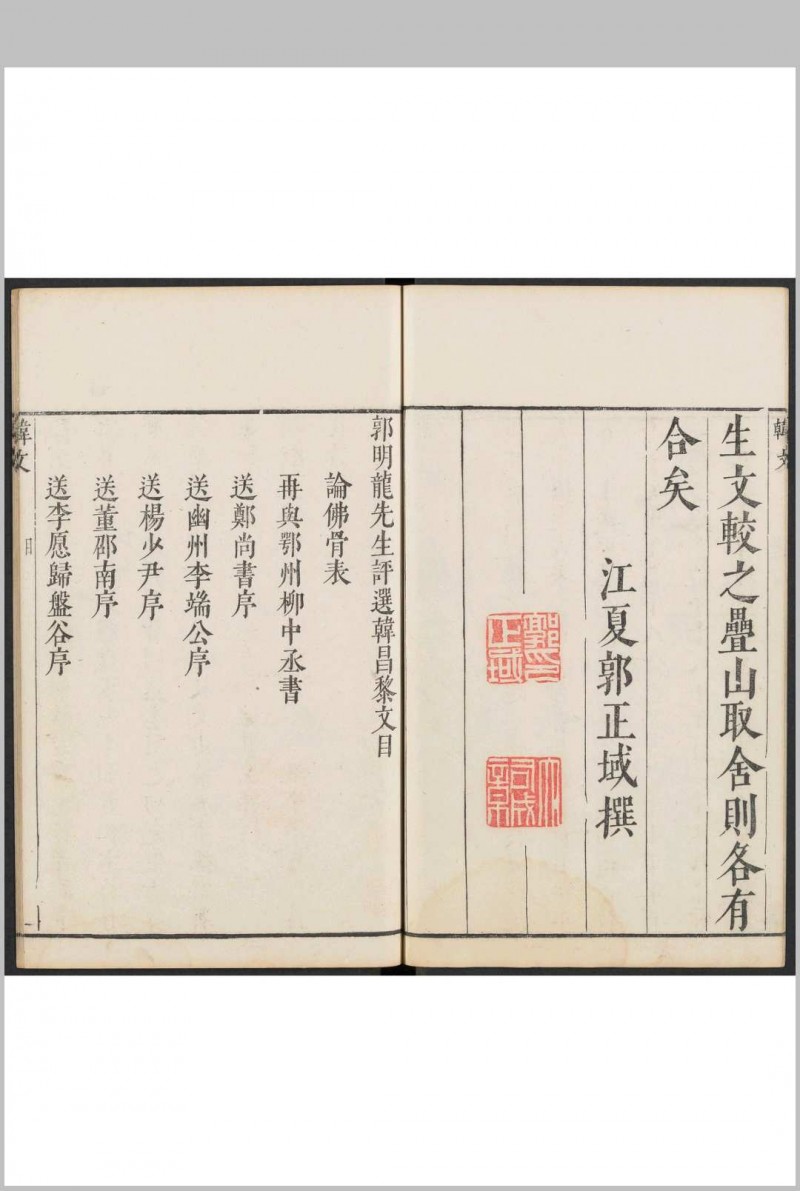 韓文
生文較之疊山取舍則各有
合矣
江夏郭正域撰
郭明龍先生評選韓昌黎文目
論佛骨表
再與鄂州柳中丞書
送鄭尚書序
送幽州李端公序
送楊少尹序
送董邵南序
送李愿歸盤谷序
韓文
目
一